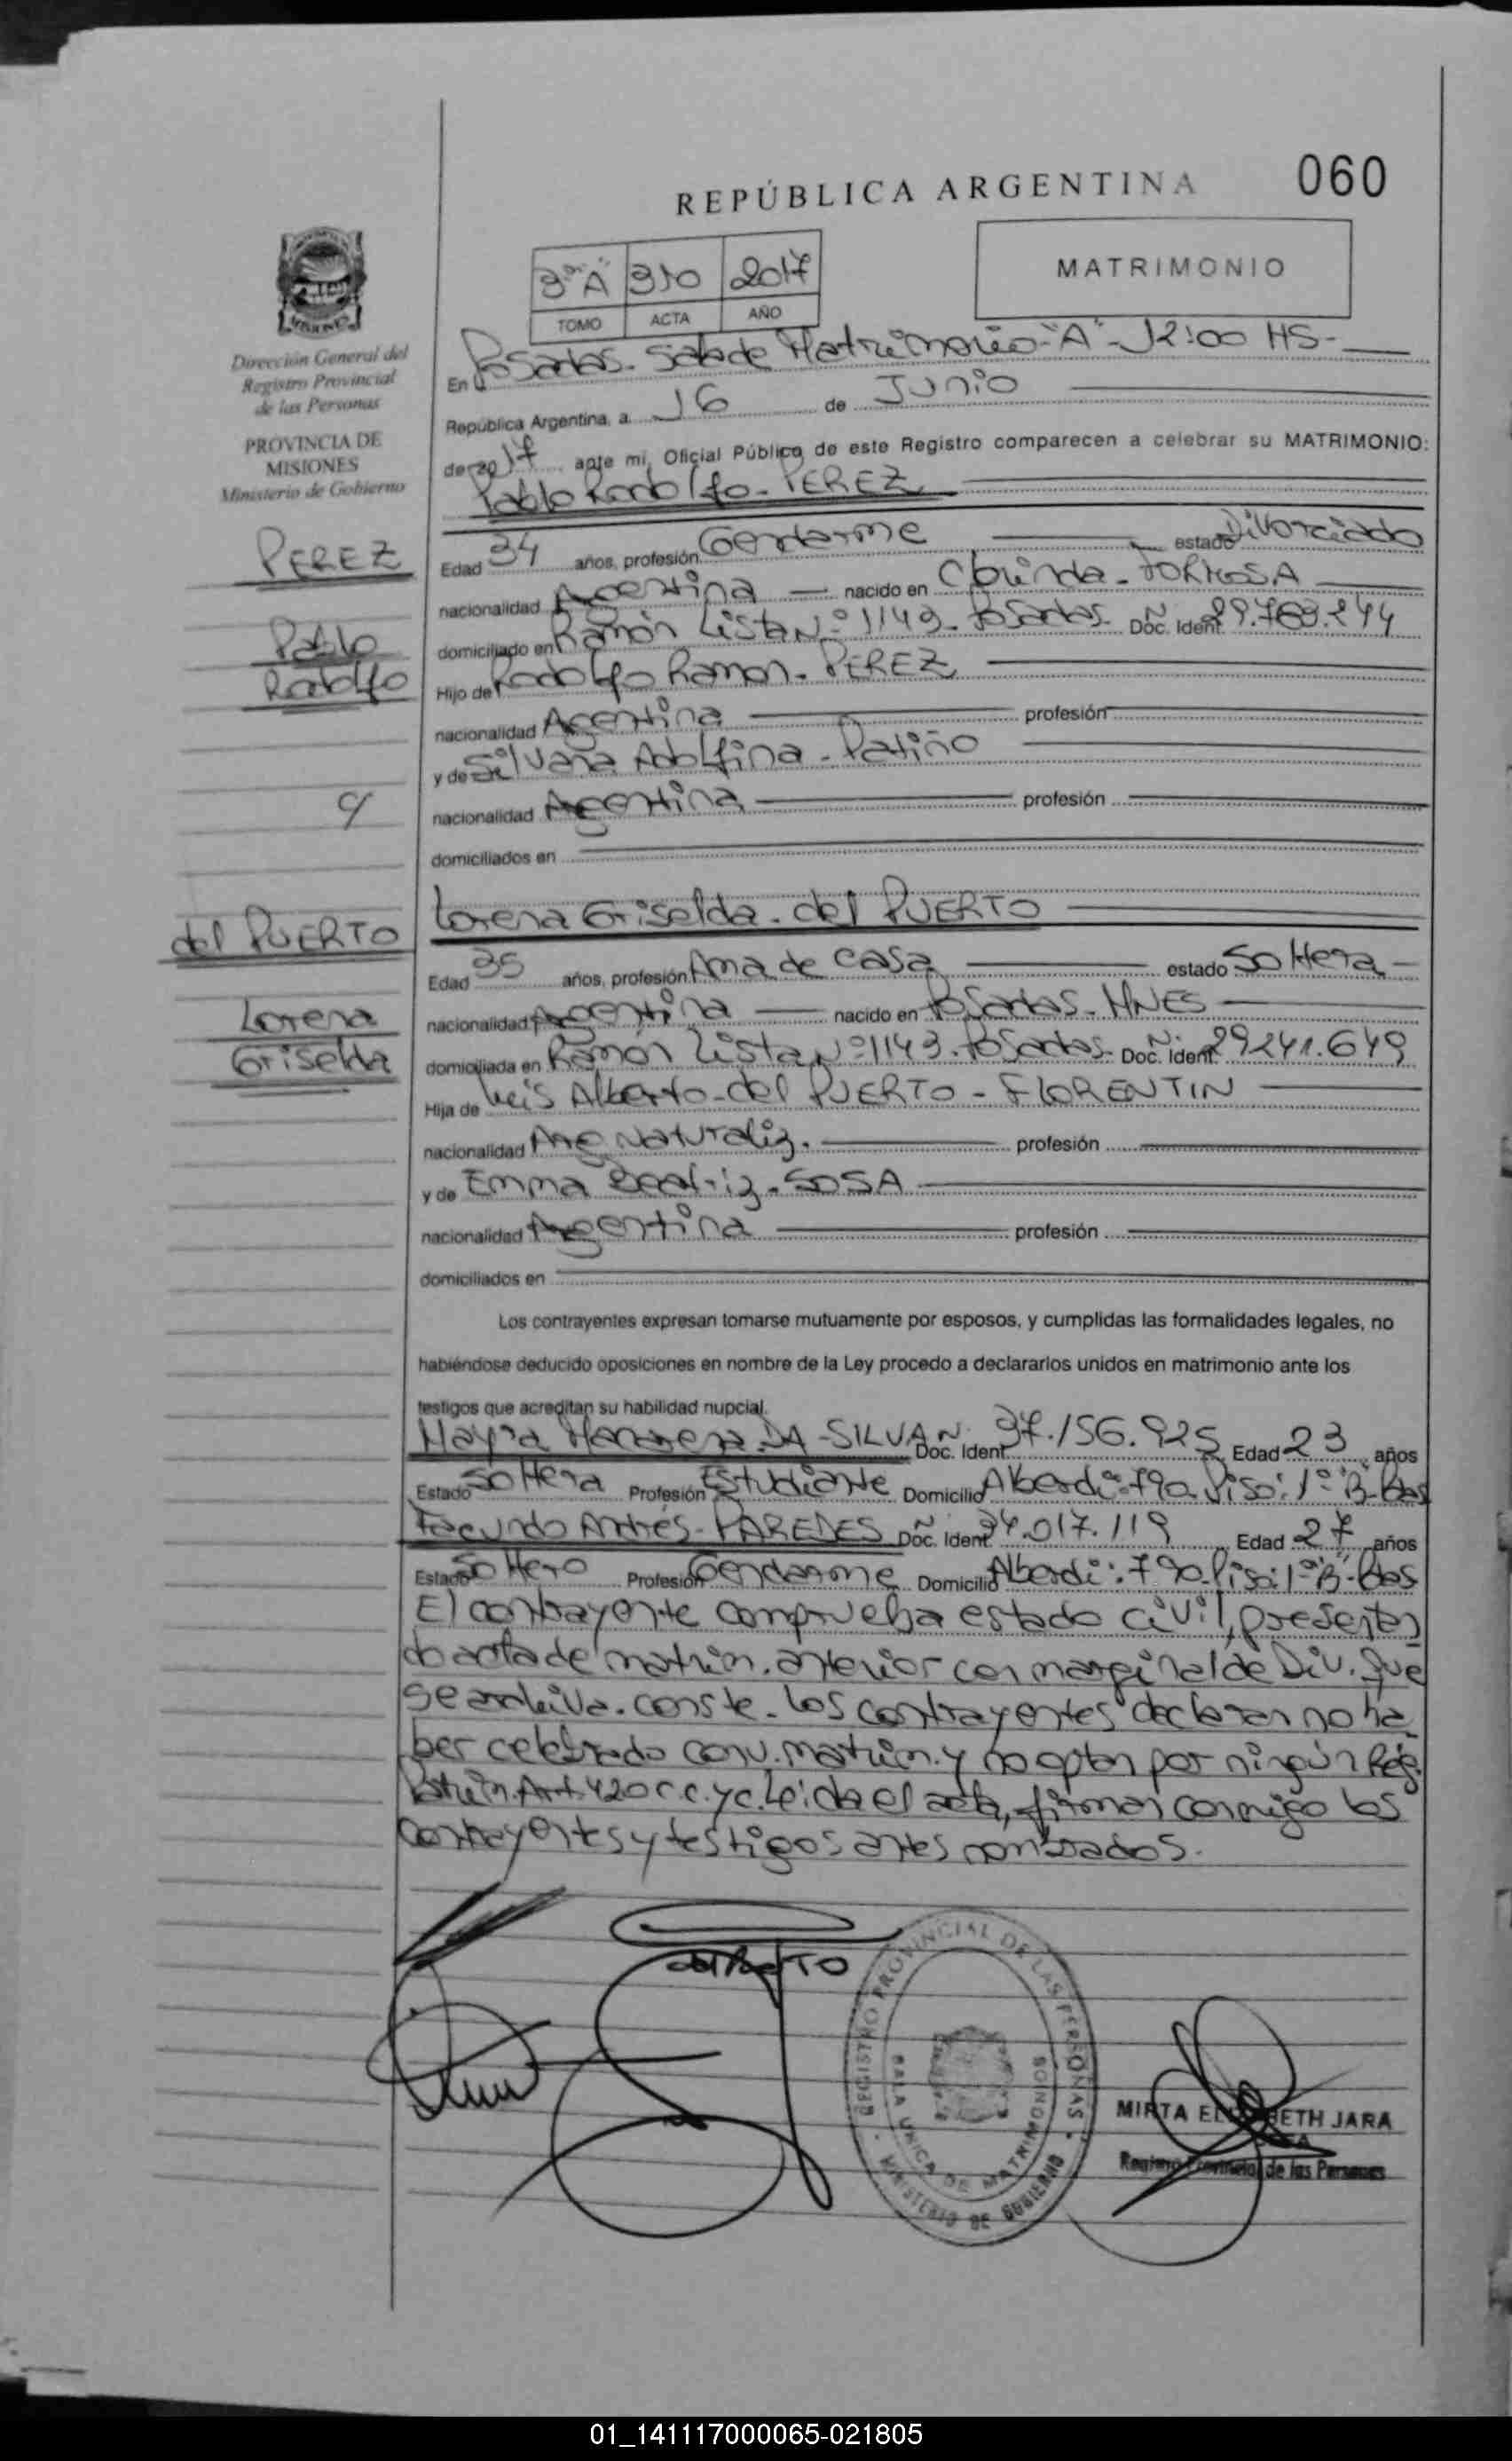 060
REPÚBLICA ARGENTINA
MATRIMONIO
3º "A" 310 2017
TOMO ACTA AÑO
Dirección General del
Registro Provincial
de las Personas
PROVINCIA DE
MISIONES
Ministerio de Gobierno
En Posadas - Sala de Matrimonio - "A" - 12:00 HS -
República Argentina, a 16 de Junio
de 2017 ante mi, Oficial Público de este Registro comparecen a celebrar su MATRIMONIO:
Pablo Rodolfo - PEREZ
PEREZ
Pablo
Rodolfo
Edad 34 años, profesión Gendarme estado Divorciado
nacionalidad Argentina nacido en Clorinda - FORMOSA
domiciliado en Ramón Lista Nº 1149 - Posadas - Doc. Ident. Nº 29.769.244
Hijo de Rodolfo Ramon - PEREZ
nacionalidad Argentina profesión
y de Silvana Adolfina - Patiño
nacionalidad Argentina profesión
domiciliados en
c/
del PUERTO
Lorena
Griselda
Lorena Griselda - del PUERTO
Edad 35 años, profesión Ama de casa estado Soltera -
nacionalidad Argentina nacido en Posadas - MNES
domiciliada en Ramón Lista Nº 1149 - Posadas - Doc. Ident. Nº 29241.649
Hija de Luis Alberto - del PUERTO - FLORENTIN
nacionalidad Arg. Naturaliz. profesión
y de Emma Beatriz - SOSA
nacionalidad Argentina profesión
domiciliados en
Los contrayentes expresan tomarse mutuamente por esposos, y cumplidas las formalidades legales, no
habiéndose deducido oposiciones en nombre de la Ley procedo a declararlos unidos en matrimonio ante los
testigos que acreditan su habilidad nupcial.
Mayra DA - SILVA Doc. Ident. Nº 37.156.925 Edad 23 años
Estado Soltera Profesión Estudiante Domicilio Alberdi: 790 Piso: 1º "B" - Pdas
Facundo Andrés - PAREDES Doc. Ident. Nº 34.017.119 Edad 27 años
Estado Soltero Profesión Gendarme Domicilio Alberdi: 790 - Piso: 1º "B" - Pdas
El contrayente comprueba estado civil, presentan
do acta de matrim. anterior con marginal de Div. que
se archiva. conste - Los contrayentes declaran no ha
ber celebrado conv. matrim. y no optan por ningún Rég.
Patrim. Art. 420 C.C. y C. Leida el acta, firman conmigo los
contrayentes y testigos antes nombrados.
del Puerto
REGISTRO PROVINCIAL DE LAS PERSONAS
SALA UNICA DE MATRIMONIOS
MINISTERIO DE GOBIERNO
MIRTA ELIZABETH JARA
Registro Provincial de las Personas
01_141117000065-021805